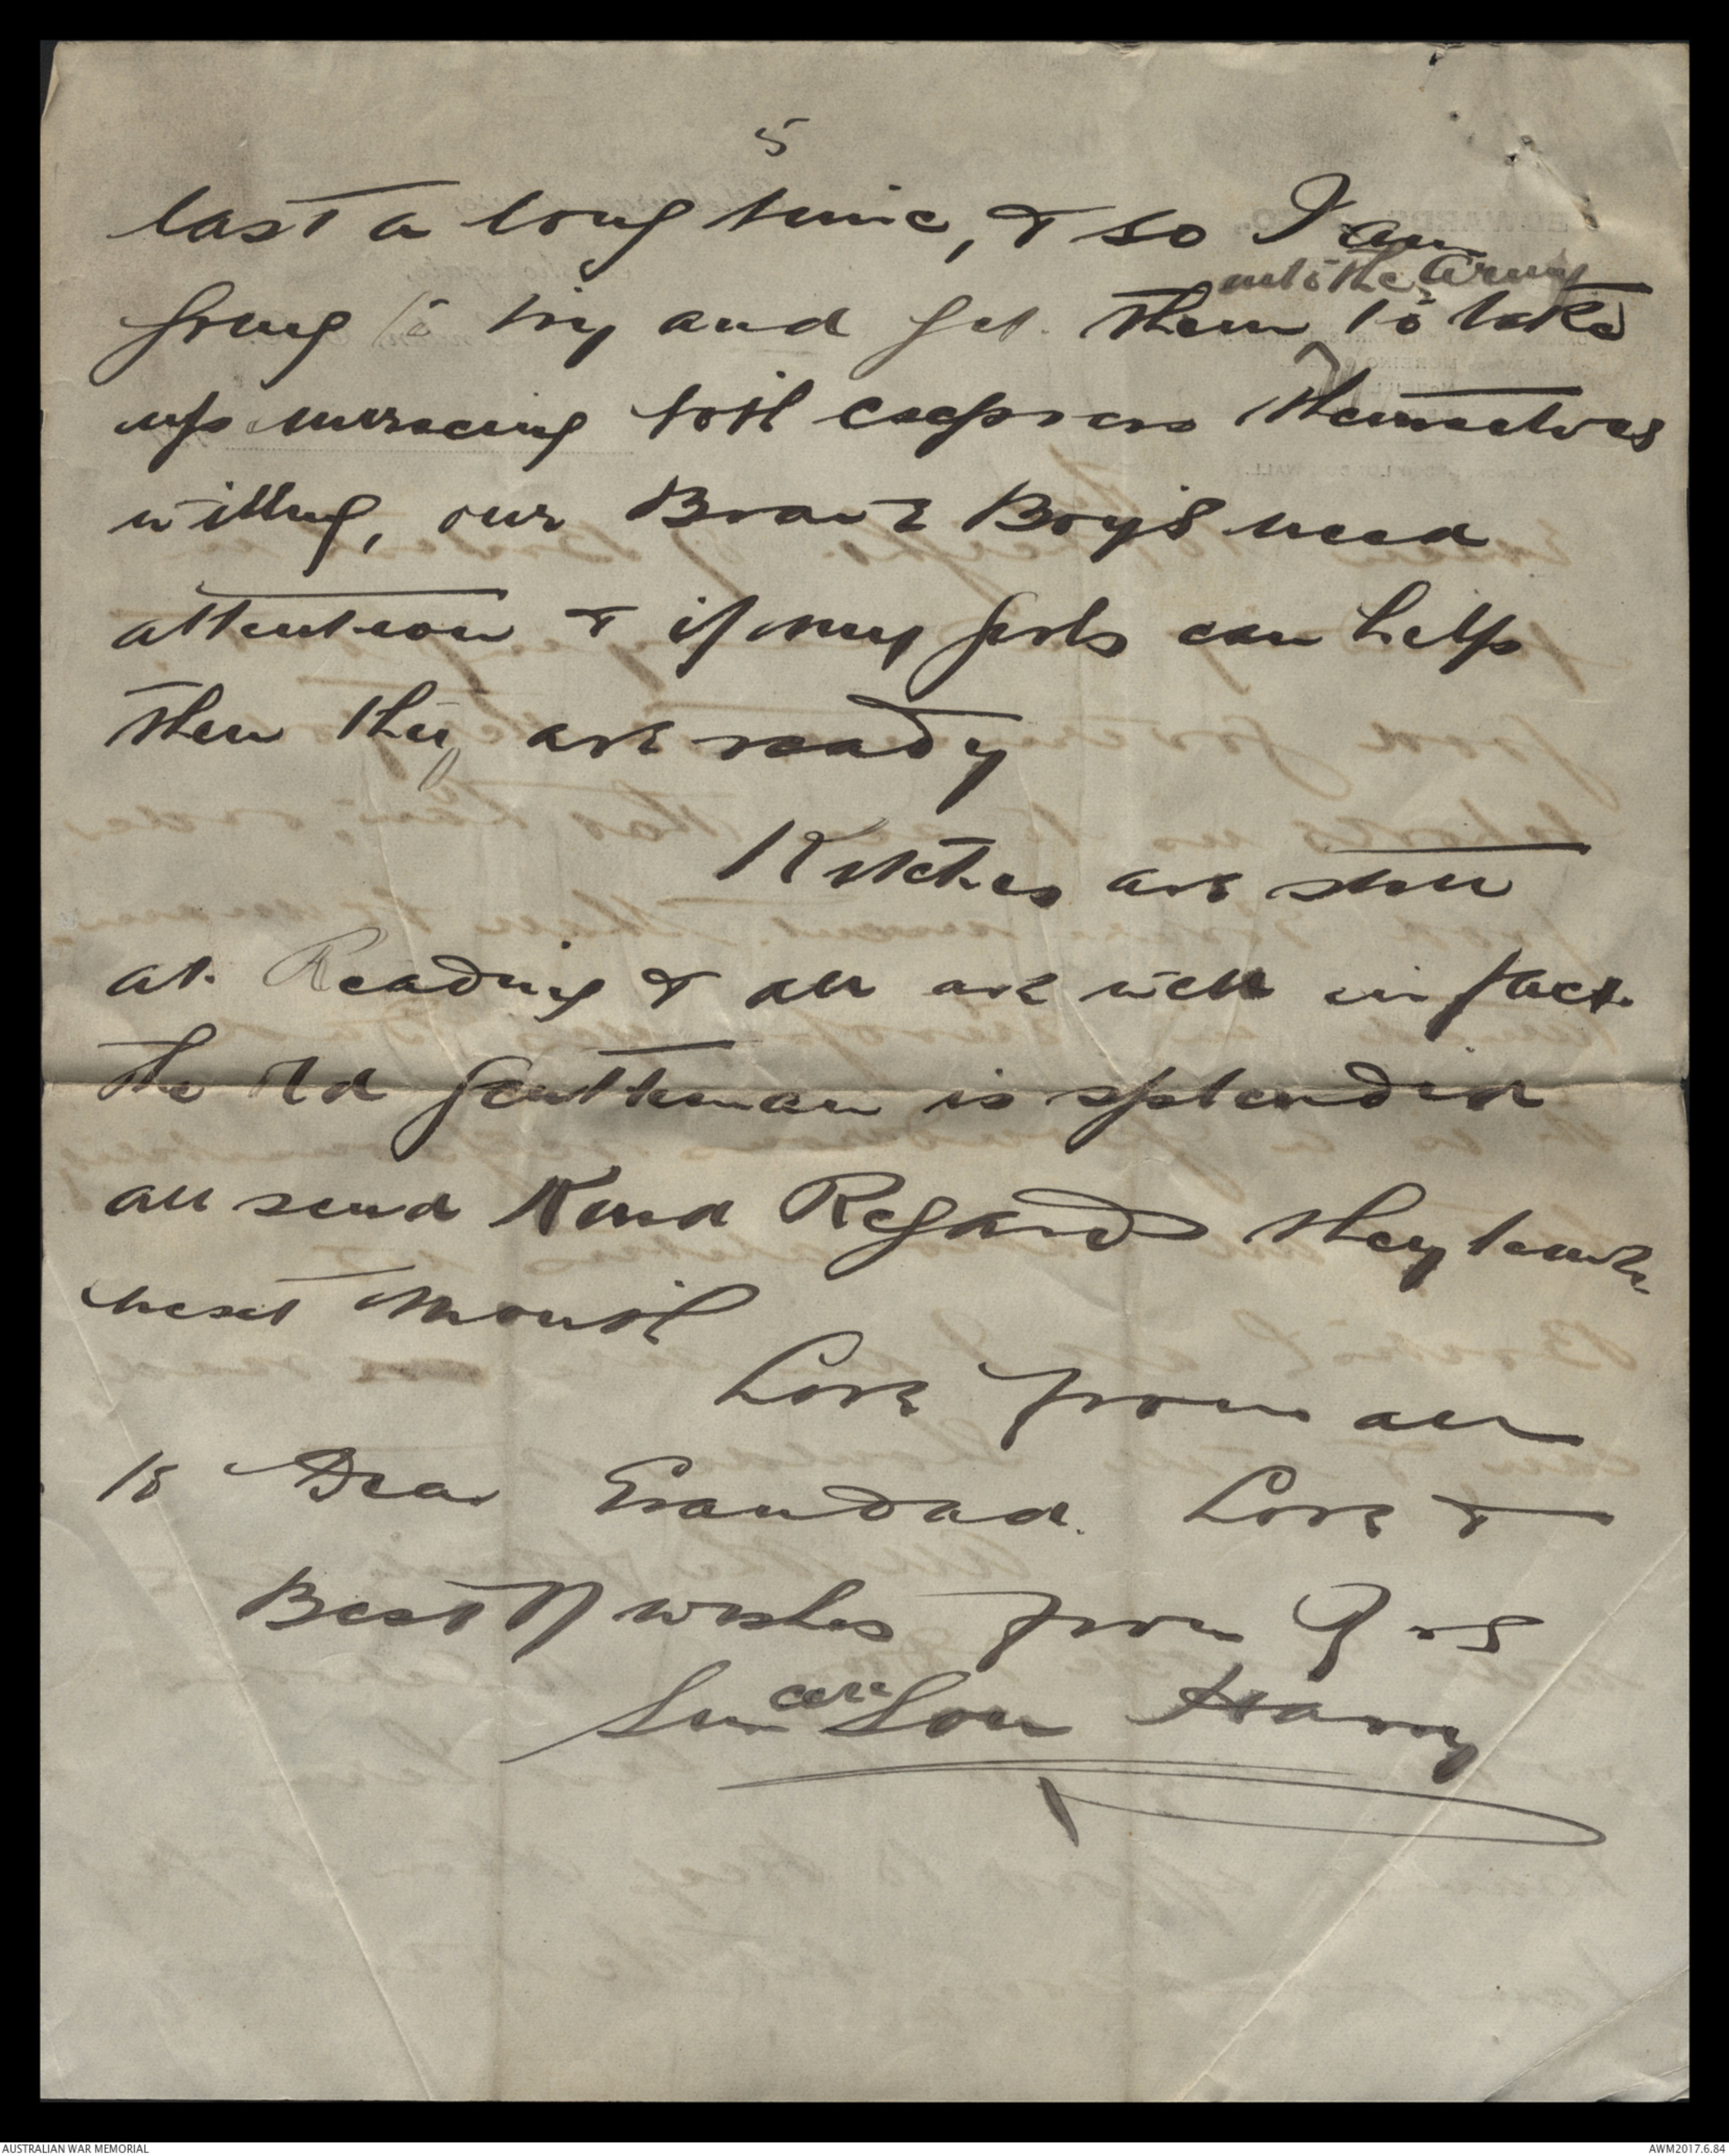 5
last a long time, & so I am
going to try and get them into the Army to take
up nursing both express themselves
willing, our Brave Boys need
attention & if my girls can help
them they are ready
are still
at Reading & all are well in fact
the old gentleman is splendid
all send Kind Regards they leave
next Month
Love from all
to Dear Grandad. Love &
Best of wishes from Yrs
Sincere Son Harry
AUSTRALIAN WAR MEMORIAL
AWM2017.6.84